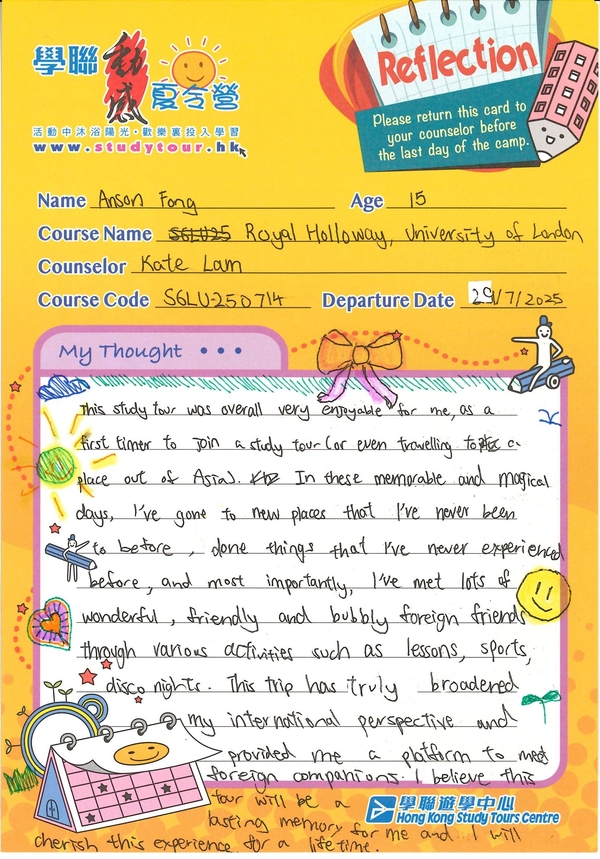 學聯 動感 夏令營
活動中沐浴陽光‧歡樂裏投入學習
www.studytour.hk
Reflection
Please return this card to
your counselor before
the last day of the camp.
Name Anson Fong Age 15
Course Name S6LU25 Royal Holloway, University of London
Counselor Kate Lam
Course Code S6LU250714 Departure Date 29/7/2025
My Thought • • •
This study tour was overall very enjoyable for me, as a
first timer to join a study tour (or even travelling to a
place out of Asia). In these memorable and magical
days, I've gone to new places that I've never been
to before, done things that I've never experienced
before, and most importantly, I've met lots of
wonderful, friendly and bubbly foreign friends
through various activities such as lessons, sports,
disco nights. This trip has truly broadened
my international perspective and
provided me a platform to meet
foreign companions. I believe this
tour will be a
lasting memory for me and I will
cherish this experience for a life time.
學聯遊學中心
Hong Kong Study Tours Centre